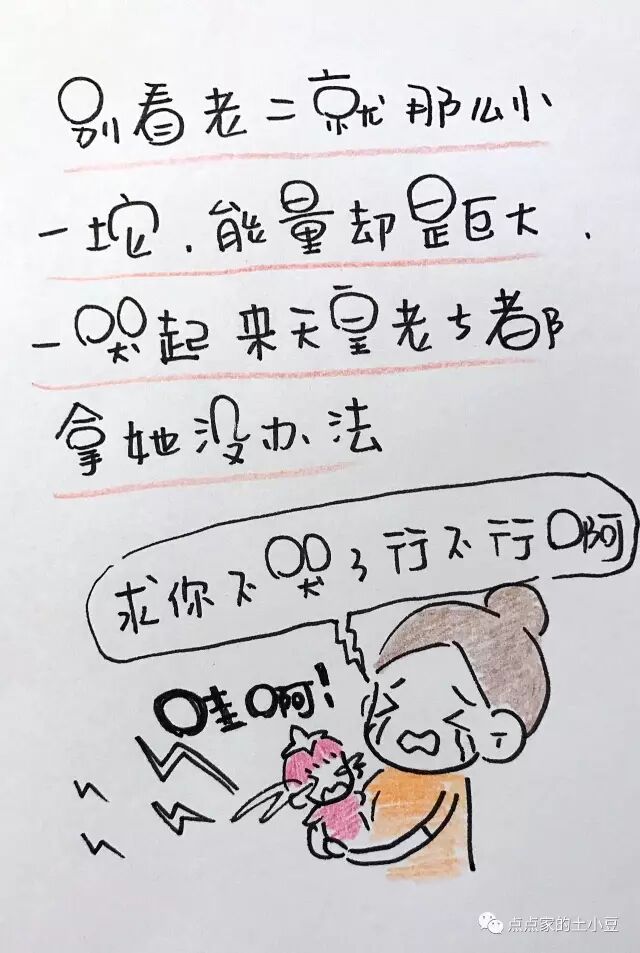 别看老二就那么小
一坨.能量却是巨大.
一哭起来天皇老七都
拿她没办法
求你不哭了行不行啊
哇啊!
点点家的土小豆